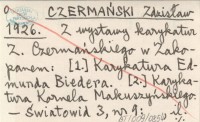 CZERMAŃSKI Zdzisław
1926. Z wystawy karykatur
Z. Czermańskiego w Zako-
panem: [1.] Karykatura Ed-
munda Biedera. [2.] Karyka-
tura Kornela Makuszyńskiego.
— Światowid 3, nr 9: il.